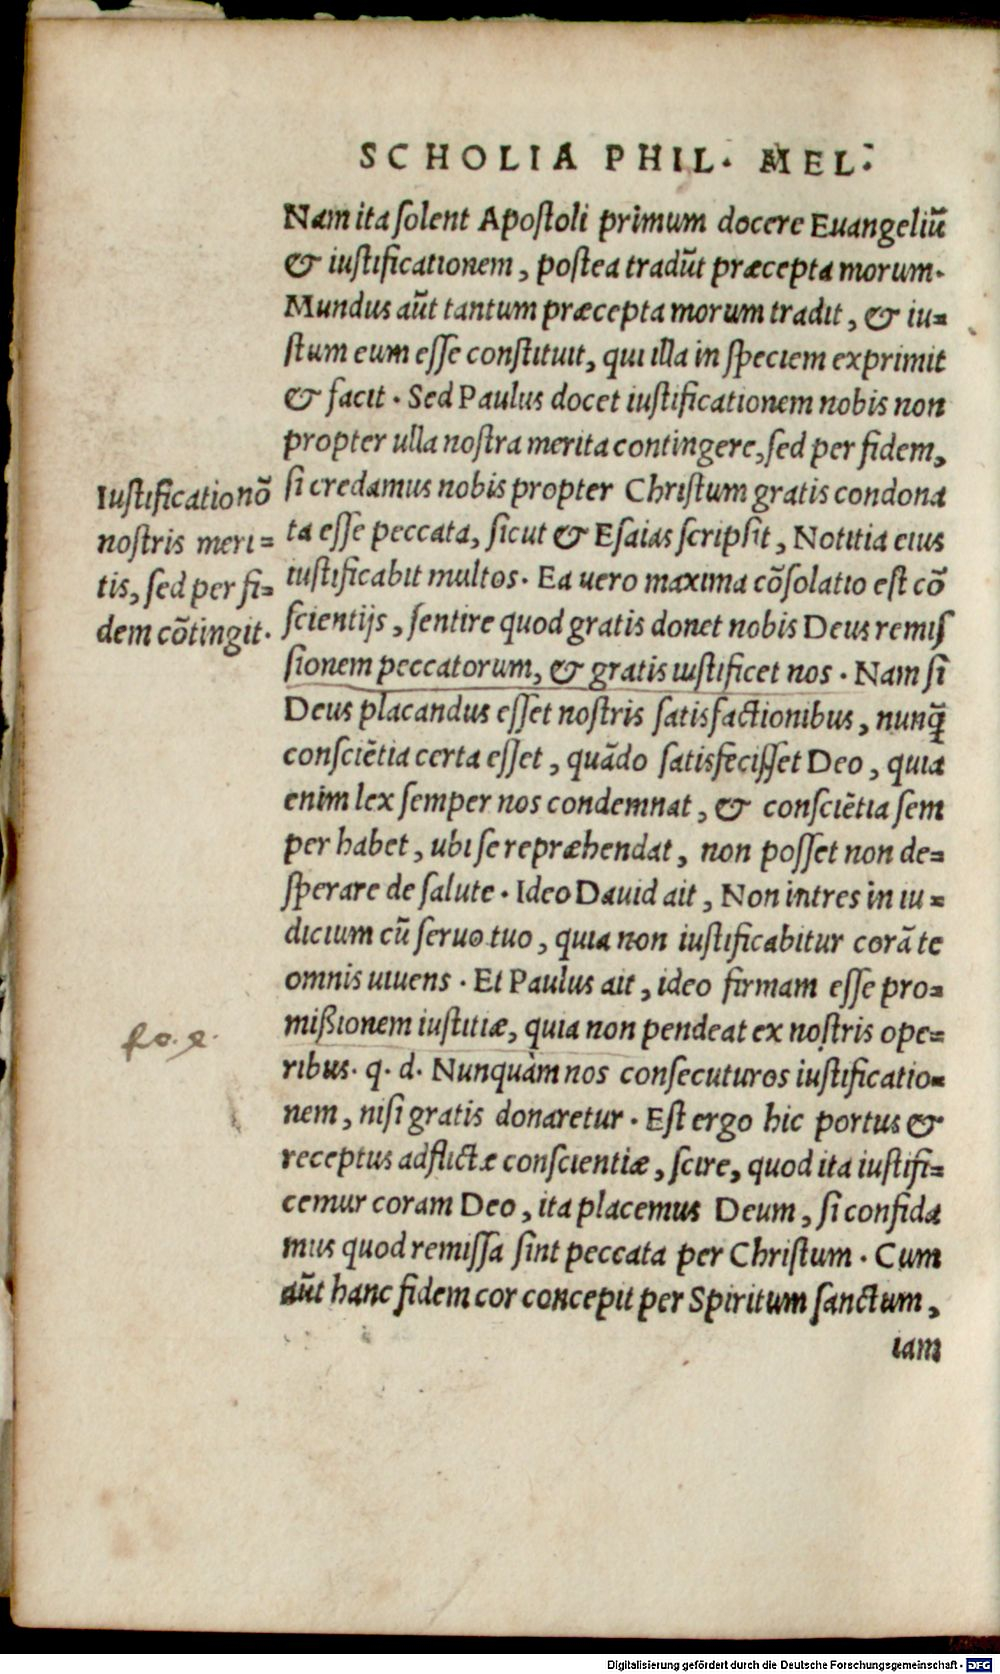 SCHOLIA PHIL. MEL:
Nam ita ſolent Apoſtoli primum docere Euangeliũ
& iuſtificationem, poſtea tradũt præcepta morum.
Mundus aũt tantum præcepta morum tradit, & iu=
ſtum eum eſſe conſtituit, qui illa in ſpeciem exprimit
& facit. Sed Paulus docet iuſtificationem nobis non
propter ulla noſtra merita contingere, ſed per fidem,
ſi credamus nobis propter Chriſtum gratis condona
ta eſſe peccata, ſicut & Eſaias ſcripſit, Notitia eius
iuſtificabit multos. Ea uero maxima cõſolatio eſt cõ
ſcientijs, ſentire quod gratis donet nobis Deus remiſ
ſionem peccatorum, & gratis iuſtificet nos. Nam ſi
Deus placandus eſſet noſtris ſatisfactionibus, nunq̃
conſciẽtia certa eſſet, quãdo ſatisfeciſſet Deo, quia
enim lex ſemper nos condemnat, & conſciẽtia ſem
per habet, ubi ſe repræhendat, non poſſet non de=
ſperare de ſalute. Ideo Dauid ait, Non intres in iu=
dicium cũ ſeruo tuo, quia non iuſtificabitur corã te
omnis uiuens. Et Paulus ait, ideo firmam eſſe pro=
mißionem iuſtitiæ, quia non pendeat ex noſtris ope=
ribus. q. d. Nunquàm nos conſecuturos iuſtificatio=
nem, niſi gratis donaretur. Eſt ergo hic portus &
receptus adflictæ conſcientiæ, ſcire, quod ita iuſtifi=
cemur coram Deo, ita placemus Deum, ſi confida
mus quod remiſſa ſint peccata per Chriſtum. Cum
aũt hanc fidem cor concepit per Spiritum ſanctum,
iam
Iuſtificatio nõ
noſtris meri=
tis, ſed per fi=
dem cõtingit.
Digitalisierung gefördert durch die Deutsche Forschungsgemeinschaft - DFG